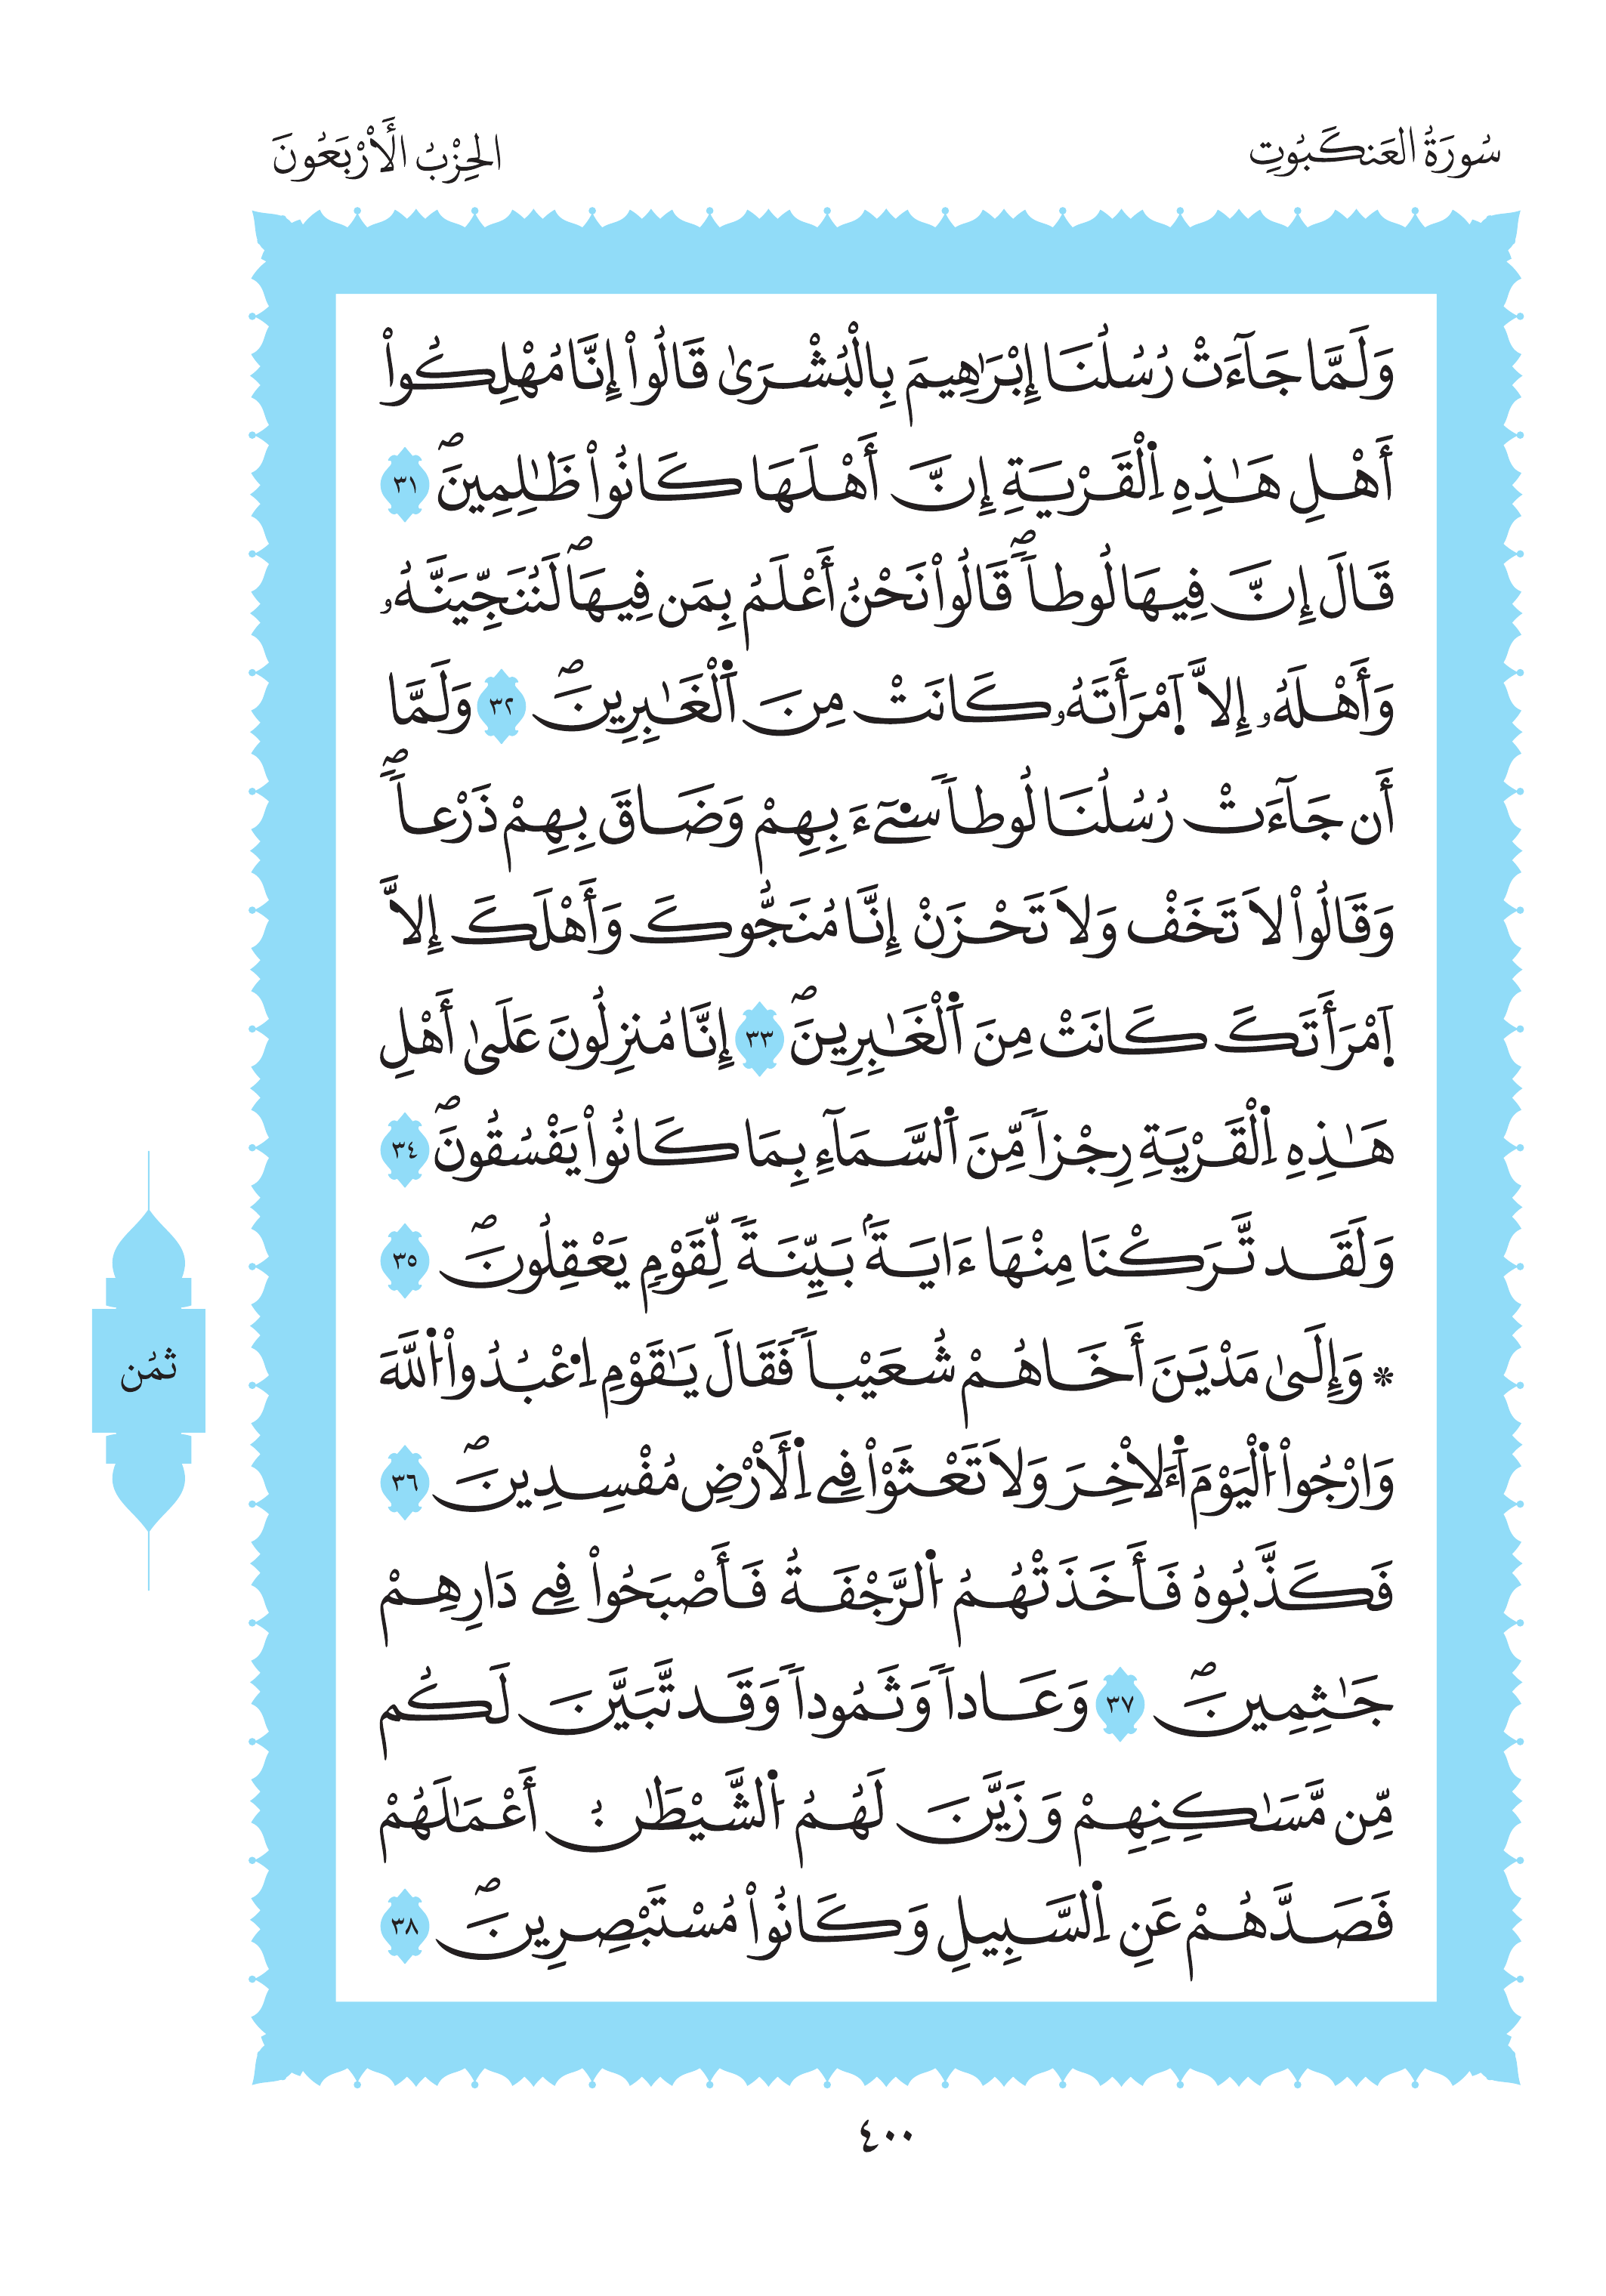 سُورَةُ العَنكَبُوتِ
الحِزْبُ الأَرْبَعُونَ
وَلَمَّا جَآءَتْ رُسُلُنَا إِبْرَٰهِيمَ بِالْبُشْرَىٰ قَالُواْ إِنَّا مُهْلِكُواْ
أَهْلِ هَٰذِهِ اِ۬لْقَرْيَةِ إِنَّ أَهْلَهَا كَانُواْ ظَٰلِمِينَۖ ٣١
قَالَ إِنَّ فِيهَا لُوطاࣰۖ قَالُواْ نَحْنُ أَعْلَمُ بِمَن فِيهَاۖ لَنُنَجِّيَنَّهُۥ
وَأَهْلَهُۥ إِلَّا اَ۪مْرَأَتَهُۥ كَانَتْ مِنَ اَ۬لْغَٰبِرِينَۖ ٣٢ وَلَمَّا
أَن جَآءَتْ رُسُلُنَا لُوطاࣰ سِےٓءَ بِهِمْ وَضَاقَ بِهِمْ ذَرْعاࣰۖ
وَقَالُواْ لَا تَخَفْ وَلَا تَحْزَنْ إِنَّا مُنَجُّوكَ وَأَهْلَكَ إِلَّا
اَ۪مْرَأَتَكَ كَانَتْ مِنَ اَ۬لْغَٰبِرِينَۖ ٣٣ إِنَّا مُنزِلُونَ عَلَىٰ أَهْلِ
هَٰذِهِ اِ۬لْقَرْيَةِ رِجْزاࣰ مِّنَ اَ۬لسَّمَآءِ بِمَا كَانُواْ يَفْسُقُونَۖ ٣٤
وَلَقَد تَّرَكْنَا مِنْهَا ءَايَةَۢ بَيِّنَةࣰ لِّقَوْمࣲ يَعْقِلُونَۖ ٣٥
۞ وَإِلَىٰ مَدْيَنَ أَخَاهُمْ شُعَيْباࣰ فَقَالَ يَٰقَوْمِ اِ۟عْبُدُواْ اُ۬للَّهَ
وَارْجُواْ اُ۬لْيَوْمَ اَ۬لَأخِرَ وَلَا تَعْثَوْاْ فِے اِ۬لَأرْضِ مُفْسِدِينَۖ ٣٦
فَكَذَّبُوهُ فَأَخَذَتْهُمُ اُ۬لرَّجْفَةُ فَأَصْبَحُواْ فِے دَارِهِمْ
جَٰثِمِينَۖ ٣٧ وَعَاداࣰ وَثَمُوداࣰ وَقَد تَّبَيَّنَ لَكُم
مِّن مَّسَٰكِنِهِمْ وَزَيَّنَ لَهُمُ اُ۬لشَّيْطَٰنُ أَعْمَٰلَهُمْ
فَصَدَّهُمْ عَنِ اِ۬لسَّبِيلِ وَكَانُواْ مُسْتَبْصِرِينَۖ ٣٨
ثمُن
٤٠٠